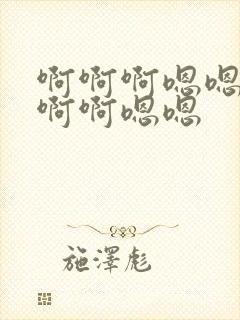 啊啊啊嗯嗯
啊啊嗯嗯
施澤彪